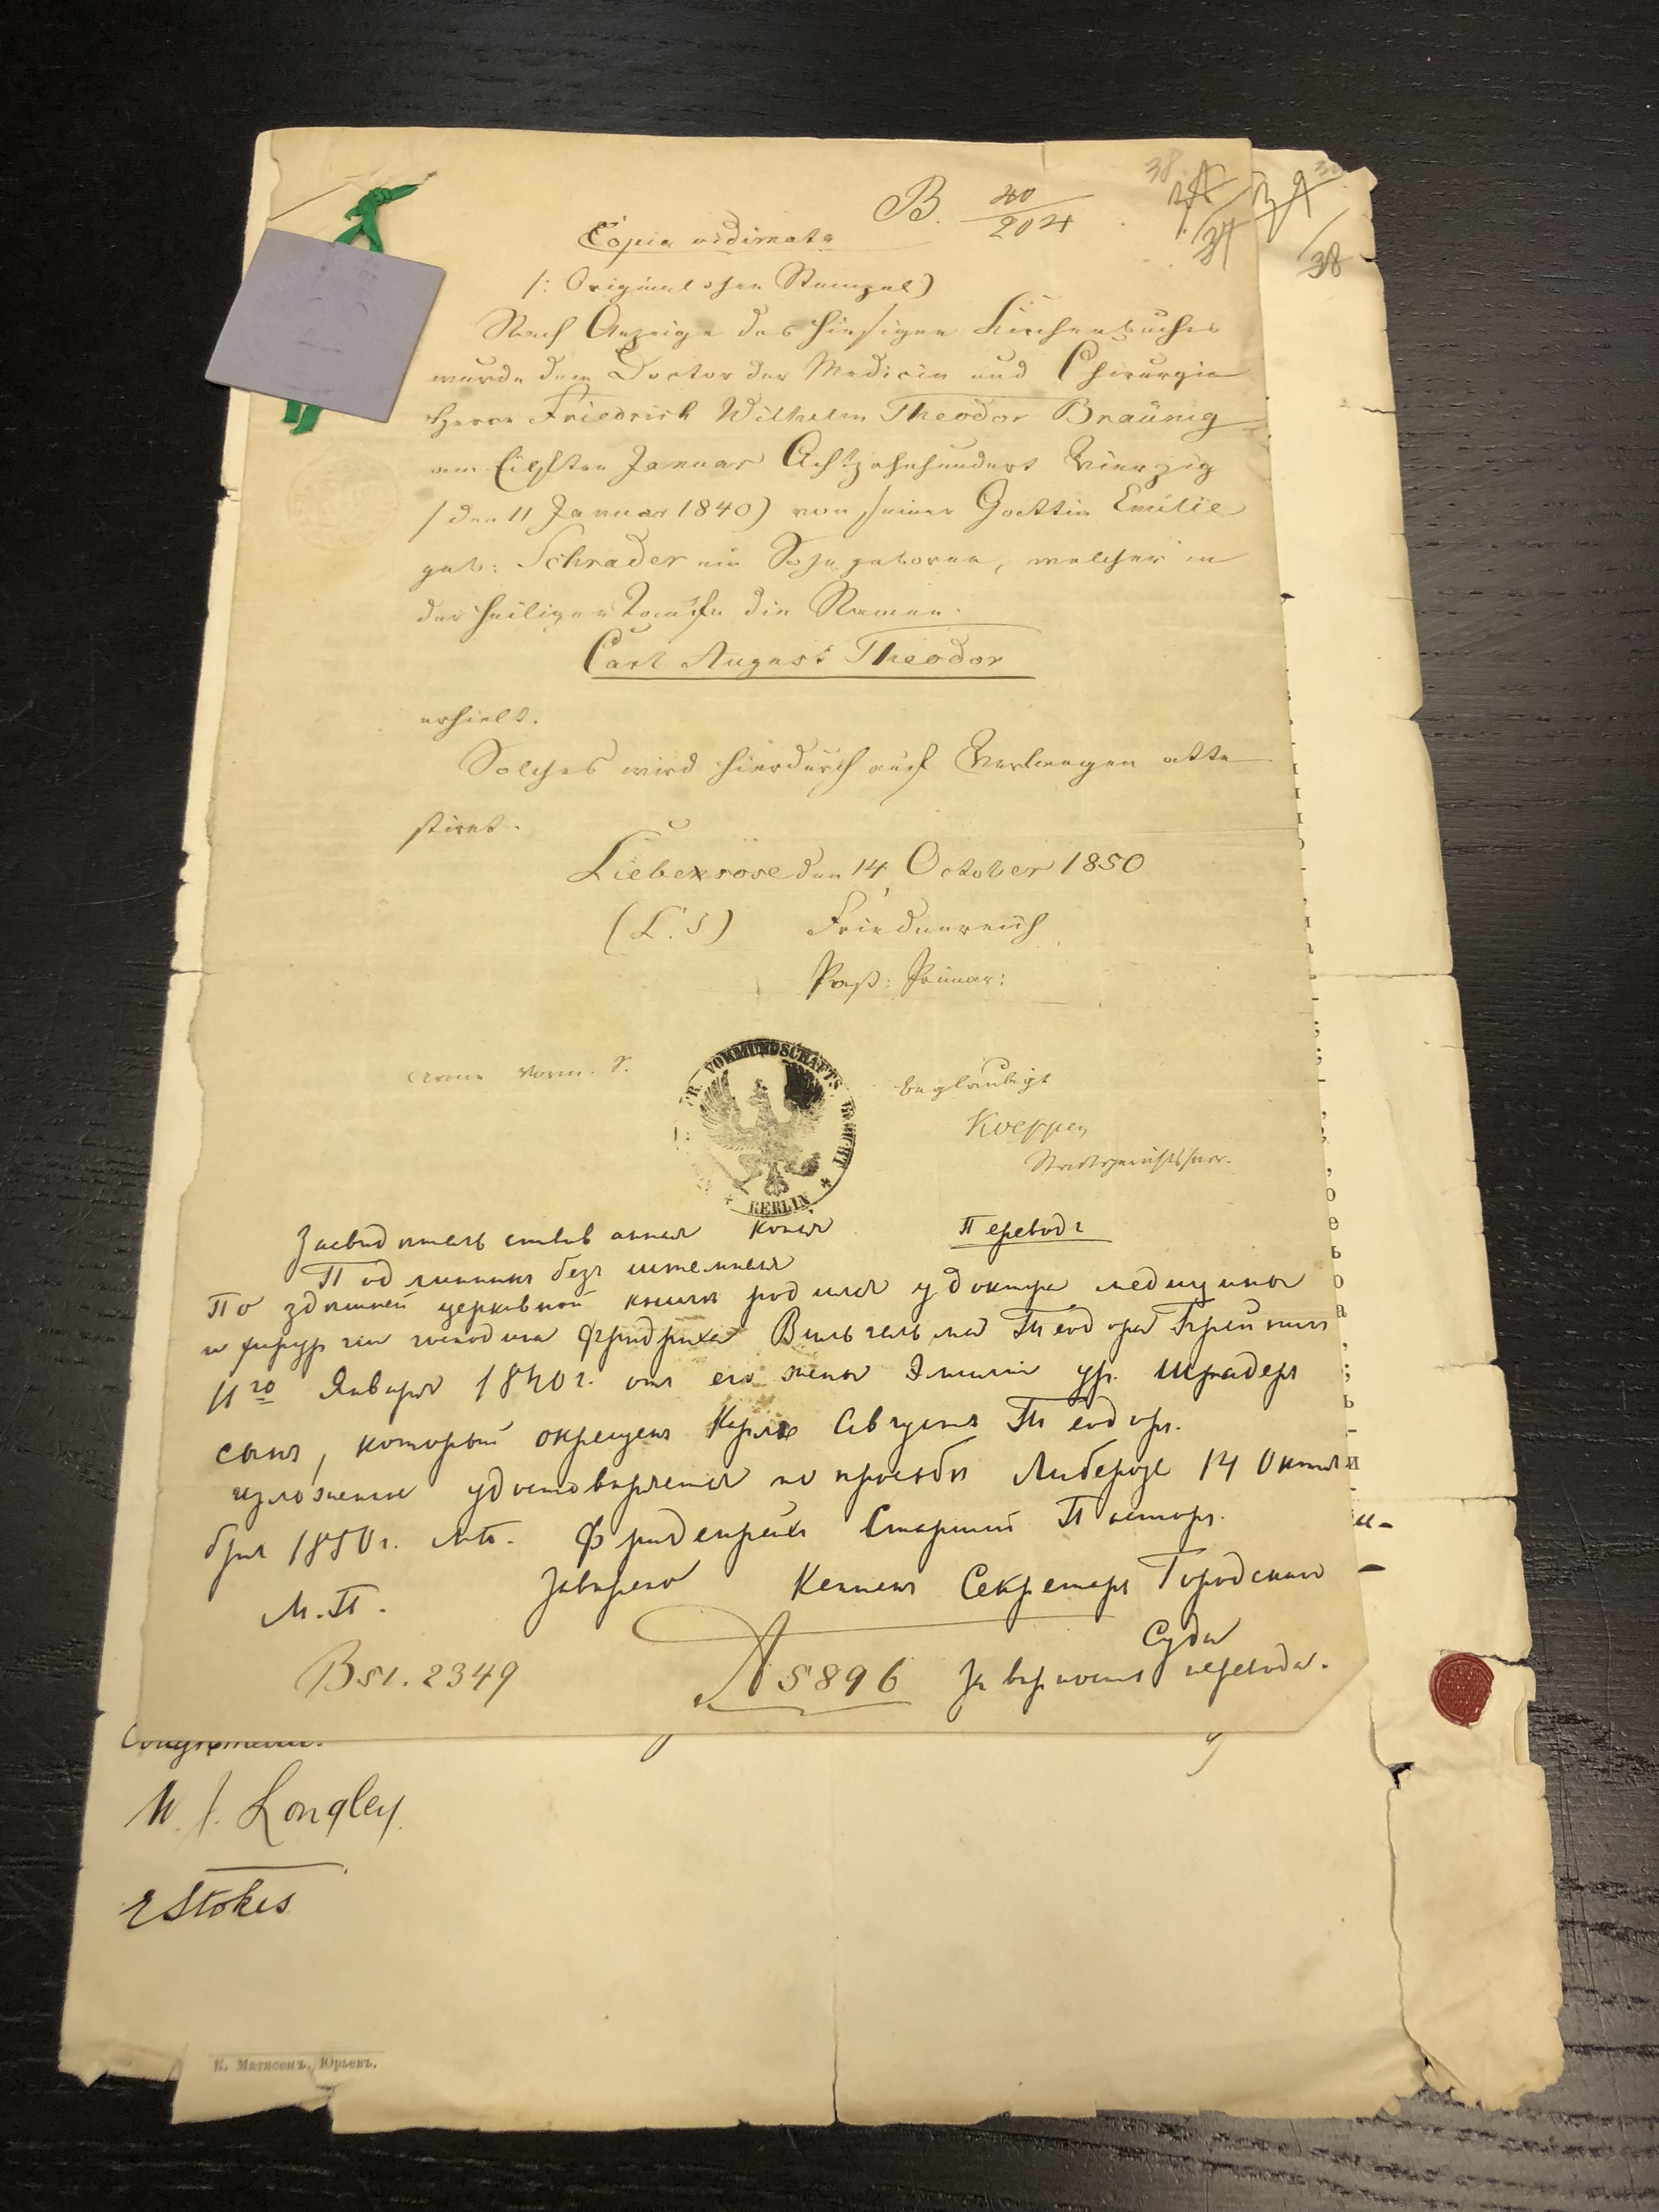 B. 40/204
38
37
38
Copia vidimata
/: Original ohne Stempel)
Nach Anzeige des hiesigen Kirchenbuches
wurde dem Doctor der Medicin und Chirurgie
Herrn Friedrich Wilhelm Theodor Braünig
am Eilften Januar Achtzehnhundert Vierzig
/ den 11 Januar 1840) von seiner Gattin Emilie
geb: Schrader ein Sohn geboren, welcher in
der heiligen Taufe die Namen
Carl August Theodor
erhielt.
Solches wird hierdurch auf Verlangen atte
stirt.
Lieberose den 14 October 1850
(L.S) Friedenreich
Past: Primar:
VORMUNDSCHAFTS GERICHT
BERLIN
beglaubigt
Koeppen
Переводъ
Засвидѣтельствованная копія
Подлинникъ безъ штемпеля
По здѣшней церковной книгѣ родился у доктора медицины
и хирургіи господина Фридриха Вильгельма Теодора Брейнигъ
11го Января 1840 г. отъ его жены Эмиліи ур. Шрадеръ
сынъ, который окрещенъ Карлъ Августъ Теодоръ.
изложенное удостовѣряется по просьбѣ Либерозе 14 Октя
бря 1850 г. М.П. Фриденрейхъ Старшій Пасторъ.
М.П. Завѣрено Кеппенъ Секретарь Городского
Суда
Bsl. 2349 A 5896 За вѣрность перевода.
W. J. Longley.
E Stokes
К. Матисенъ, Юрьевъ.